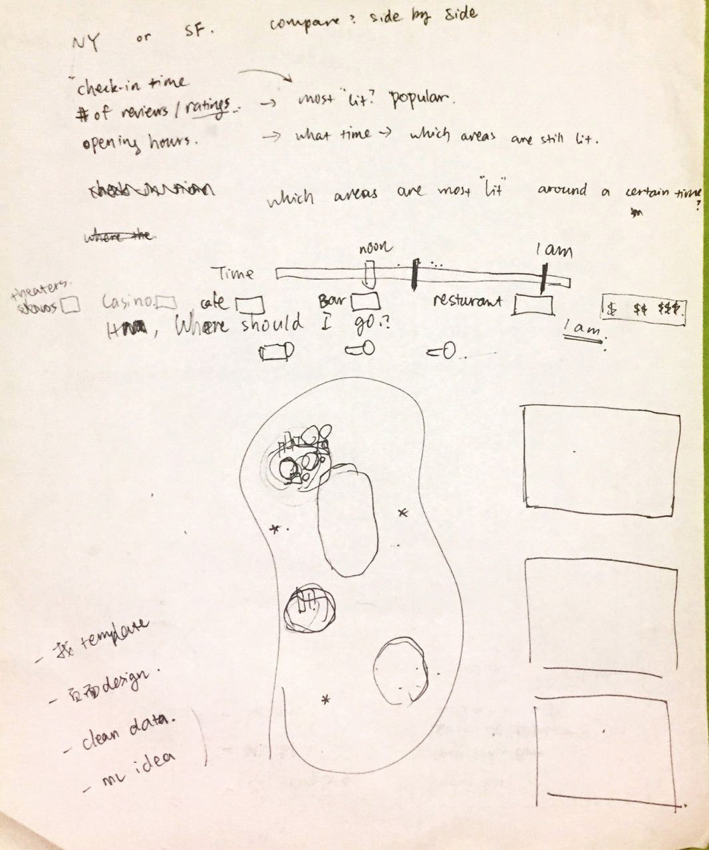 NY or SF. compare? side by side
"check-in time
# of reviews / ratings. → most "lit"? popular.
opening hours. → what time → which areas are still lit.
which areas are most "lit" around a certain time ?
where the
noon 1 am
Time
theaters. shows Casino cafe Bar resturant $ $$ $$$.
Where should I go.?
1 am.
- 找 template
- 页面 design.
- clean data.
- idea